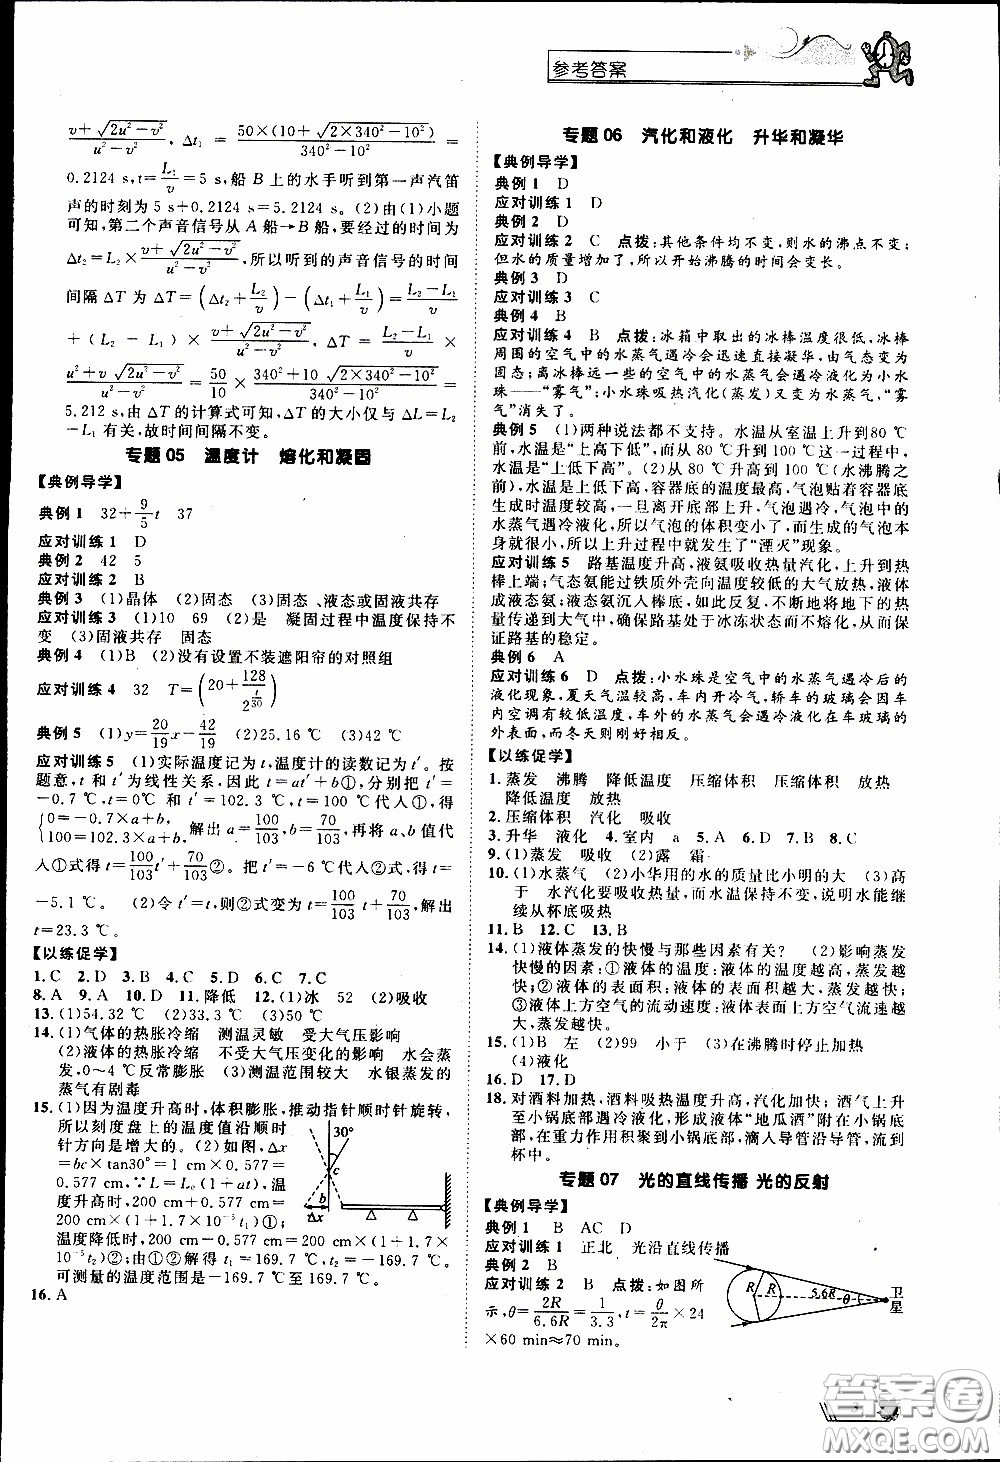 参考答案
v+√(2u²−v²)/(u²−v²), Δt₁ = 50×(10+√(2×340²−10²))/(340²−10²) =
0.2124 s,t=L₁/v=5 s,船 B 上的水手听到第一声汽笛
声的时刻为 5 s+0.2124 s=5.2124 s。(2)由(1)小题
可知,第二个声音信号从 A 船→B 船,要经过的时间为
Δt₂=L₂×(v+√(2u²−v²))/(u²−v²),所以听到的声音信号的时间
间隔 ΔT 为 ΔT=(Δt₂+L₂/v)−(Δt₁+L₁/v)=(L₂−L₁)/v
+(L₂−L₁)×(v+√(2u²−v²))/(u²−v²)=(L₂−L₁)/v×
(u²+v√(2u²−v²))/(u²−v²)=50/10×(340²+10√(2×340²−10²))/(340²−10²)=
5.212 s,由 ΔT 的计算式可知,ΔT 的大小仅与 ΔL=L₂
−L₁ 有关,故时间间隔不变。
专题 05 温度计 熔化和凝固
【典例导学】
典例 1 32+9/5 t 37
应对训练 1 D
典例 2 42 5
应对训练 2 B
典例 3 (1)晶体 (2)固态 (3)固态、液态或固液共存
应对训练 3 (1)10 69 (2)是 凝固过程中温度保持不
变 (3)固液共存 固态
典例 4 (1)B (2)没有设置不装遮阳帘的对照组
应对训练 4 32 T=(20+128/2^(t/30))
典例 5 (1)y=20/19 x−42/19 (2)25.16 ℃ (3)42 ℃
应对训练 5 (1)实际温度记为 t,温度计的读数记为 t′。按
题意,t 和 t′为线性关系,因故设:t=at′+b①,分别将 t′=
−0.7 ℃,t=0℃ 和 t′=102.3 ℃,t=100℃代人①式,得
{0=−0.7×a+b, 100=102.3×a+b, 解出 a=100/103,b=70/103,再将 a、b 值代
人①式得 t=100/103 t′+70/103;将 t′=−6 ℃代人②式,解出 t=
−5.1 ℃。 (2)令 t′=t,则②式变为 t=100/103 t+70/103,解出
t=23.3 ℃。
【以练促学】
1.C 2.D 3.B 4.C 5.D 6.C 7.C
8.A 9.A 10.D 11.降低 12.(1)冰 52 (2)吸收
13.(1)54.32 ℃ (2)33.3 ℃ (3)50 ℃
14.(1)气体的热胀冷缩 测温灵敏 受大气压影响
(2)液体的热胀冷缩 不受大气压变化的影响 水会蒸
发、0~4 ℃反常膨胀 (3)测温范围较大 水银蒸发的
蒸气有剧毒
15.(1)因为温度升高时,体积膨胀,推动指针顺时针旋转,
所以刻度盘上的温度值沿顺时
针方向是增大的。(2)由图知,Δx
=bc×tan30°=1 cm×0.577=
0.577 cm,∵L=L₀(1+at),温度
升高时:200 cm+0.577 cm=
200 cm×(1+1.7×10⁻⁵t₁)①;
温度降低时,200 cm−0.577 cm=200 cm×(1+1.7×10⁻⁵
t₂)②;由①②解得 t₁=169.7 ℃,t₂=−169.7 ℃。
可测量的温度范围是−169.7 ℃至169.7 ℃。
30°
c
b
Δx
16.A
专题 06 汽化和液化 升华和凝华
【典例导学】
典例 1 D
应对训练 1 D
典例 2 D
应对训练 2 C 点拨:其他条件均不变,则水的沸点不变;
但水的质量增加了,所以开始沸腾的时间会变长。
典例 3 D
应对训练 3 C
典例 4 B
应对训练 4 B 点拨:冰箱中取出的冰棒温度很低,冰棒
周围的空气中的水蒸气遇冷会迅速直接凝华,由气态变为
固态;离冰棒远一些的空气中的水蒸气遇冷液化为小水
珠——“雾气”;小水珠吸热汽化(蒸发)又变为水蒸气,“雾
气”消失了。
典例 5 (1)两种说法都不支持。水温从室温上升到80 ℃
时,水温是“上低下高”;水温从80 ℃到100 ℃这一过程中,
水温是“上下相同”。(2)水温从80 ℃到100 ℃(水沸腾之
前)过程中,容器底的温度最高,气泡受热先在容器底
生成。但是一旦离开底部上升,气泡遇冷,气泡内的
水蒸气遇冷液化,所以气泡的体积变小了,而生成的气泡本
身就很小,所以上升过程中就发生了“湮灭”现象。
应对训练 5 路基温度升高,液氨吸收热量汽化,上升到热
棒上端;气态氨能过铁质外壳向温度较低的大气放热,液体
成液态氨;液态氨沉人棒底,如此反复,不断地将地下的
热量传递到大气中,确保路基处于冰冻状态而不熔化,保
证路基的稳定。
典例 6 A
应对训练 6 D 点拨:小水珠是空气中的水蒸气遇冷后的
液化现象,夏天气温较高,车内开冷气,轿车的玻璃会因车
内空调而有较低温度,车外的水蒸气会遇冷液化在车玻璃的
外表面,而冬天则刚好相反。
【以练促学】
1.蒸发 沸腾 降低温度 压缩体积 压缩体积 放热
降低温度 放热
2.压缩体积 汽化 吸收
3.升华 液化 4.室内 a 5.A 6.D 7.B 8.C
9.(1)蒸发 吸收 (2)露 霜
10.(1)水蒸气 (2)小华用的水的质量比小明的大 (3)高
于 水汽化要吸收热量,而水温保持不变,说明水能继
续从杯底吸热
11.B 12.C 13.B
14.(1)液体蒸发的快慢与那些因素有关? (2)影响蒸发
快慢的因素:①液体的温度:液体的温度越高,蒸发越
快;②液体的表面积:液体的表面积越大,蒸发越快;
③液体上方空气的流动速度:液体表面上方空气流动越
大,蒸发越快。
15.(1)B 左 (2)99 小于 (3)在沸腾时停止加热
(4)液化
16.D 17.D
18.对酒料加热,酒料吸热温度升高,汽化加快;酒气上升
至小锅底部遇冷液化,形成液体“地瓜酒”附在小锅底
部,在重力作用积聚到小锅底部,滴人导管沿导管,流到
杯中。
专题 07 光的直线传播 光的反射
【典例导学】
典例 1 B AC D
应对训练 1 正北 光沿直线传播
典例 2 B
应对训练 2 B 点拨:如图所
示,θ=2R/6.6R=1/3.3,t=θ/2π×24
×60 min≈70 min。
R R 5.6R θ 卫星
答案圈
MXQE.COM